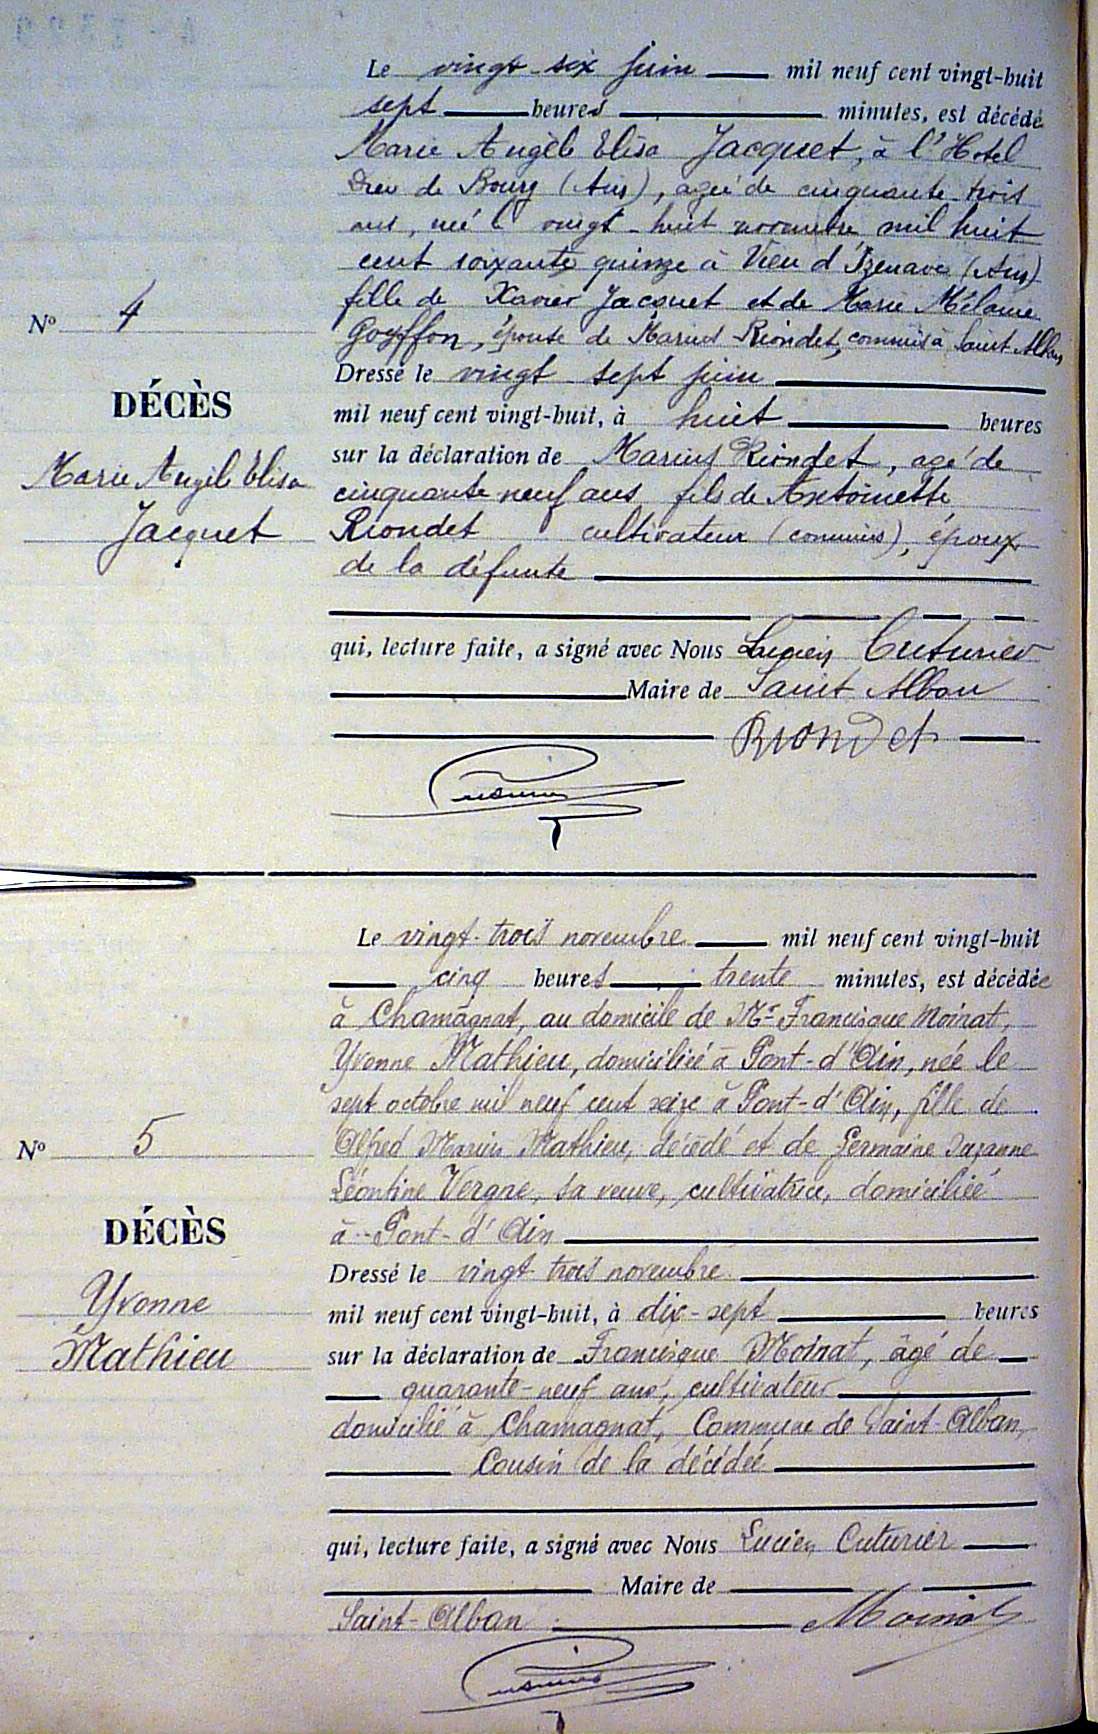 Le vingt-six juin mil neuf cent vingt-huit
sept heures minutes, est décédé
Marie Angèle Elisa Jacquet, à l'Hotel
Dieu de Bourg (Ain), agée de cinquante trois
ans, née le vingt-huit novembre mil huit
cent soixante quinze à Vieu d'Izenave (Ain)
fille de Xavier Jacquet et de Marie Mélanie
Goyffon, épouse de Marius Riondet, commis à Saint Alban
Nº 4
DÉCÈS
Marie Angèle Elisa
Jacquet
Dressé le vingt sept juin
mil neuf cent vingt-huit, à huit heures
sur la déclaration de Marius Riondet, agé de
cinquante neuf ans fils de Antoinette
Riondet cultivateur (commis), époux
de la défunte
qui, lecture faite, a signé avec Nous Lucien Cuturier
Maire de Saint Alban
Riondet
Cuturier
Le vingt-trois novembre mil neuf cent vingt-huit
cinq heures trente minutes, est décédée
à Chamagnat, au domicile de Mr Francisque Moinat,
Yvonne Mathieu, domiciliée à Pont-d'Ain, née le
sept octobre mil neuf cent seize à Pont-d'Ain, fille de
Alfred Marius Mathieu, décédé et de Germaine Suzanne
Léontine Vergne, sa veuve, cultivatrice, domiciliée
à Pont-d'Ain
Nº 5
DÉCÈS
Yvonne
Mathieu
Dressé le vingt trois novembre
mil neuf cent vingt-huit, à dix-sept heures
sur la déclaration de Francisque Moinat, âgé de
quarante-neuf ans, cultivateur
domicilié à Chamagnat, Commune de Saint-Alban,
Cousin de la décédée
qui, lecture faite, a signé avec Nous Lucien Cuturier
Maire de
Saint-Alban Moinat
Cuturier